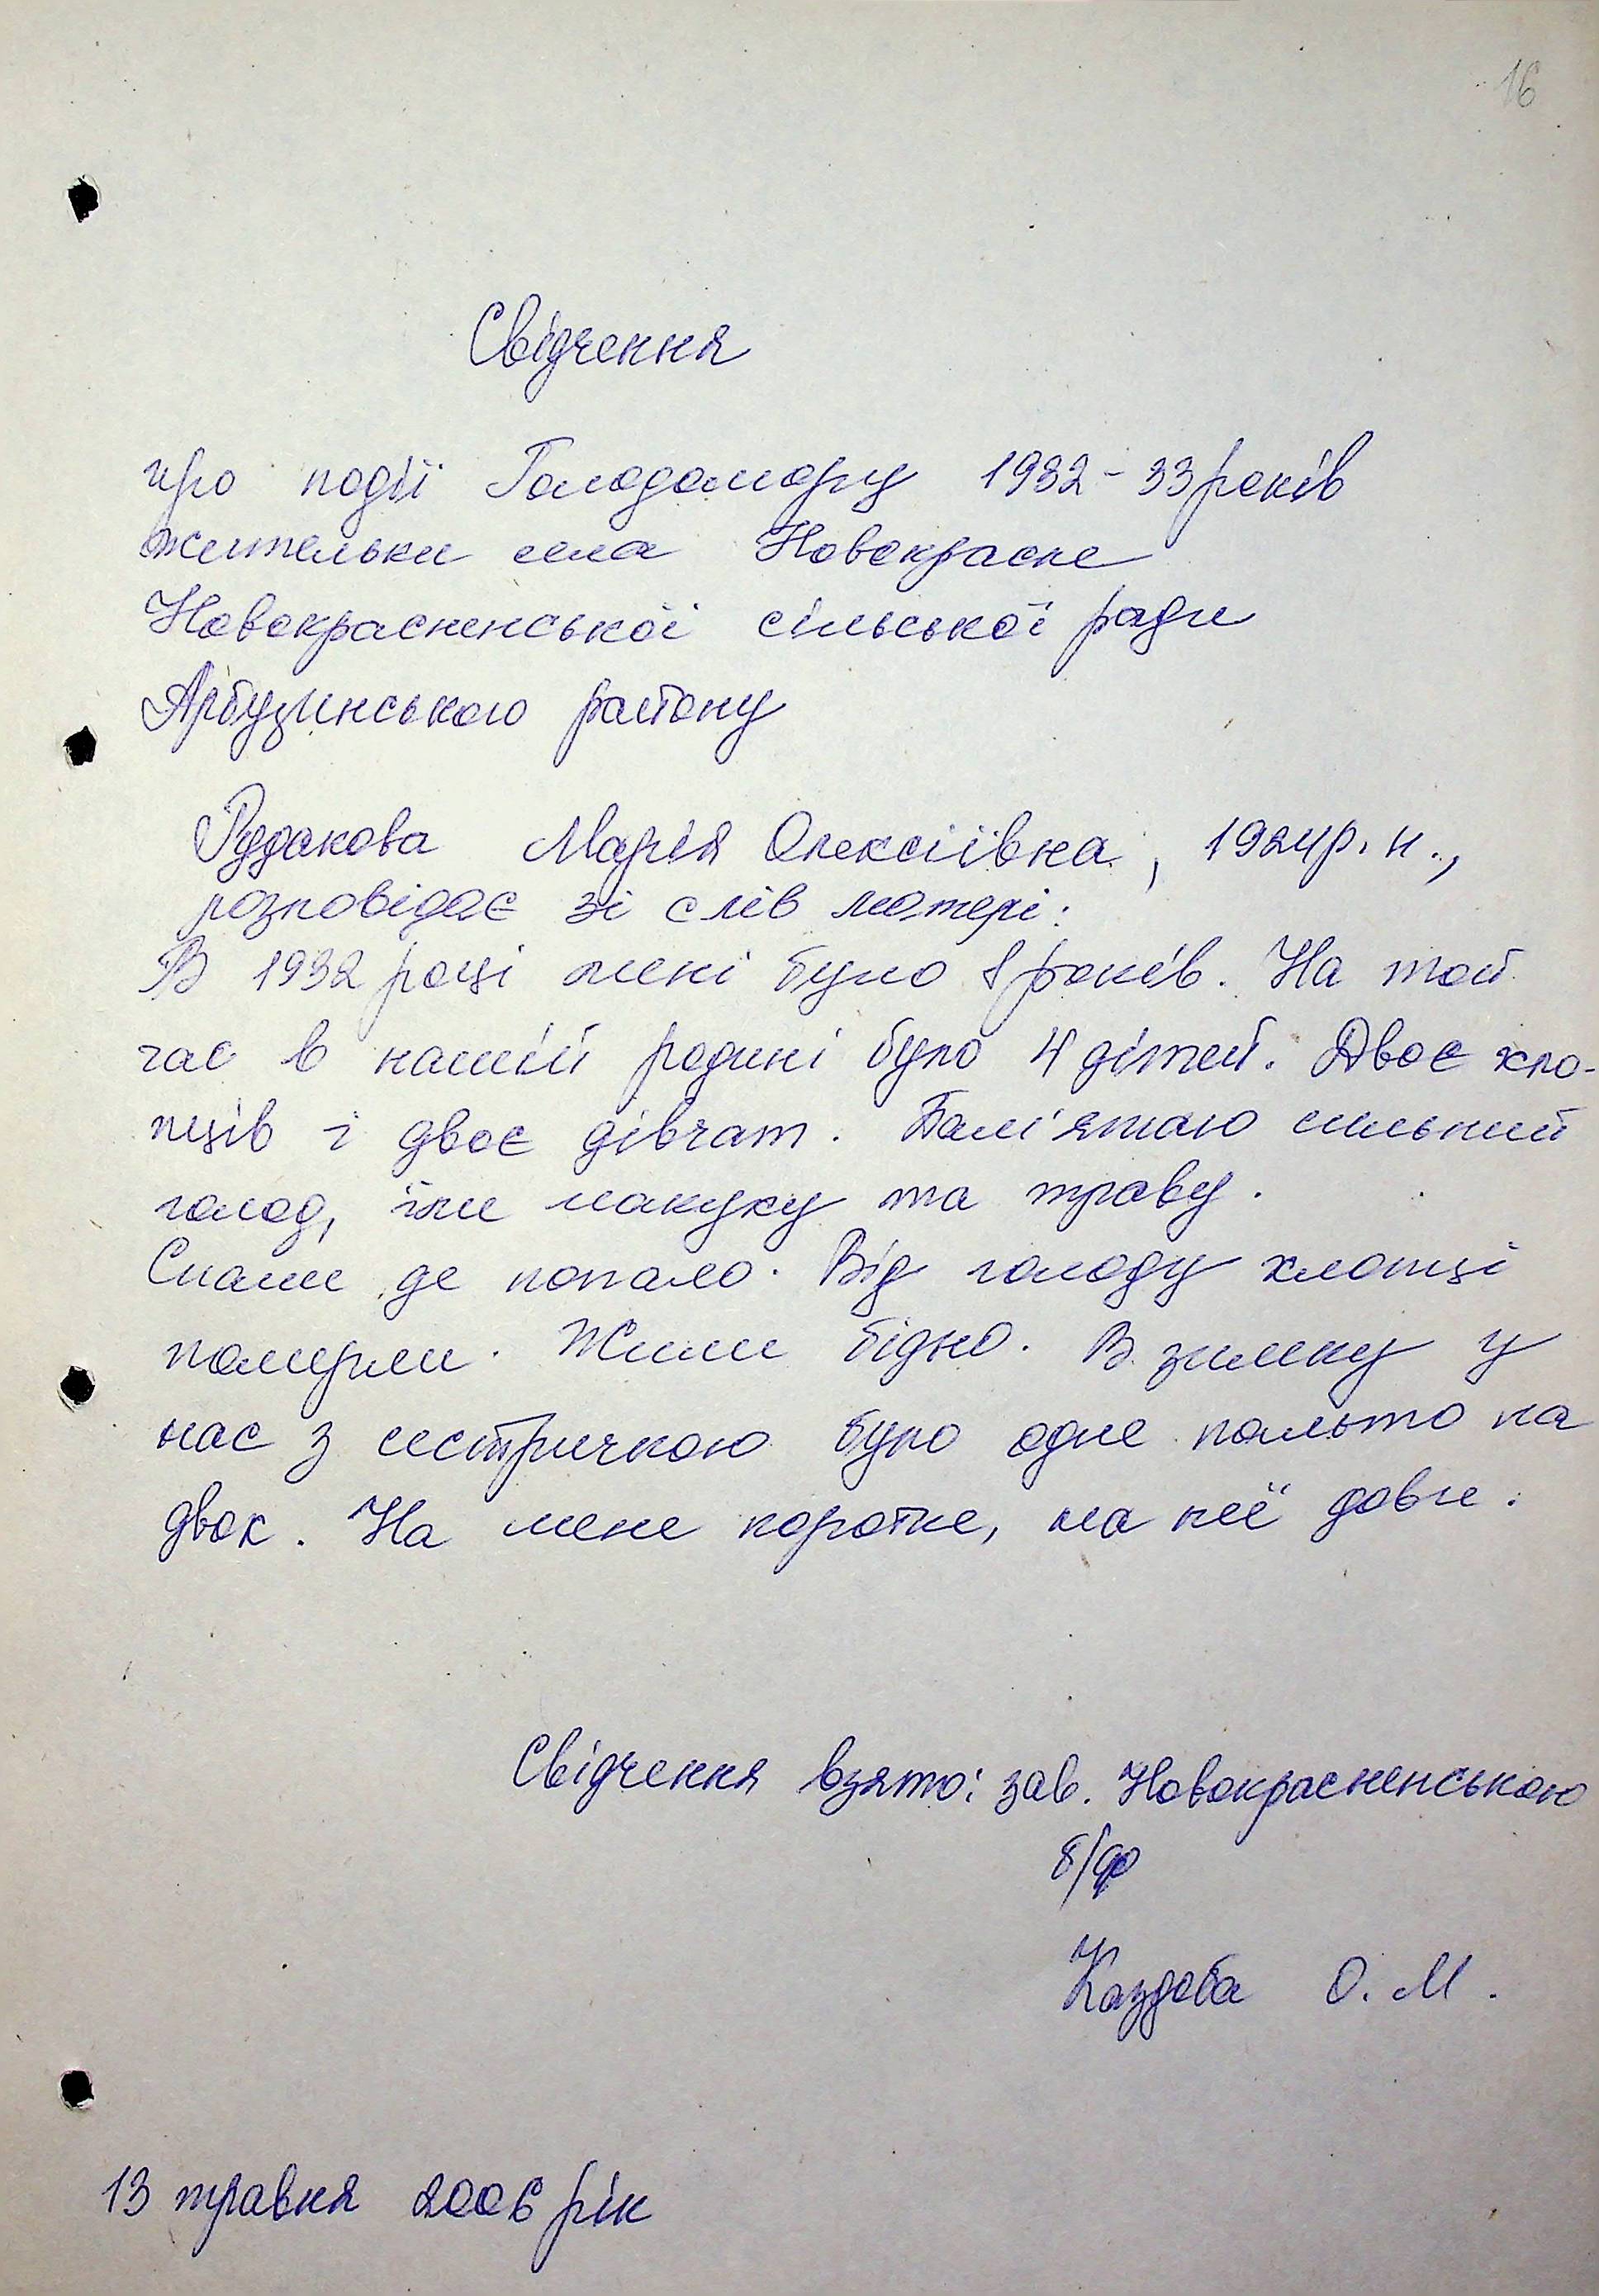 16
Свідчення
про події Голодомору 1932-33 років
жительки села Новокрасне
Новокрасненської сільської ради
Арбузинського району
Рудакова Марія Олексіївна, 1924 р. н.,
розповідає зі слів матері:
В 1932 році мені було 8 років. На той
час в нашій родині було 4 дітей. Двоє хло-
пців і двоє дівчат. Пам'ятаю сильний
голод, їли макуху та траву.
Спали де попало. Від голоду хлопці
померли. Жили бідно. В зимку у
нас з сестричкою було одне пальто на
двох. На мене коротке, на неї довге.
Свідчення взято: зав. Новокрасненською
б/ф
Каздоба О. М.
13 травня 2006 рік